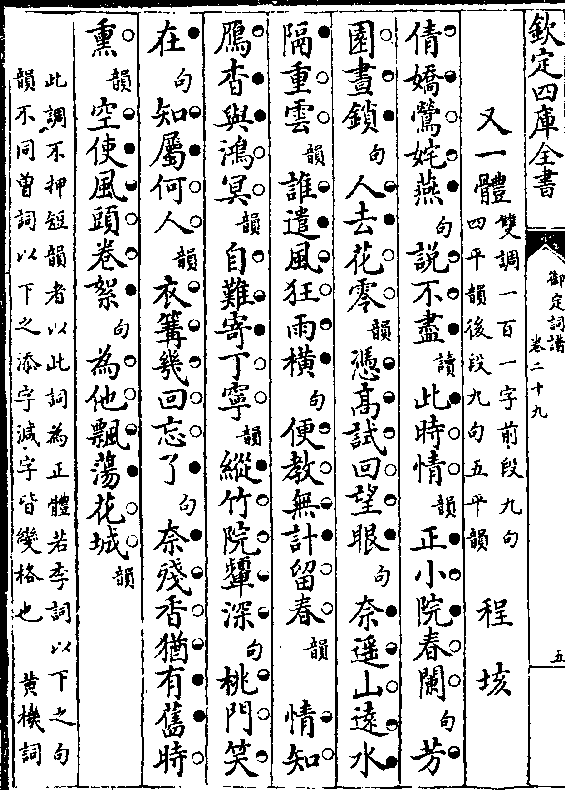 欽定四庫全書
御定詞譜
卷二十九
五
又一體
雙調一百一字前段九句
四平韻後段九句五平韻
程垓
倩嬌鶯姹燕句說不盡讀此時情韻正小院春闌句芳
園晝鎖句人去花零韻憑髙試回望眼句奈遥山逺水
隔重雲韻誰遣風狂雨横句便教無計留春韻 情知
鴈杳與鴻冥韻自難寄丁寧韻縱竹院顰深句桃門笑
在句知屬何人韻衣篝幾回忘了句奈殘香猶有舊時
熏韻空使風頭卷絮句為他飄蕩花城韻
此調不押短韻者以此詞為正體若李詞以下之句
韻不同曾詞以下之添字減字皆變格也 黄機詞